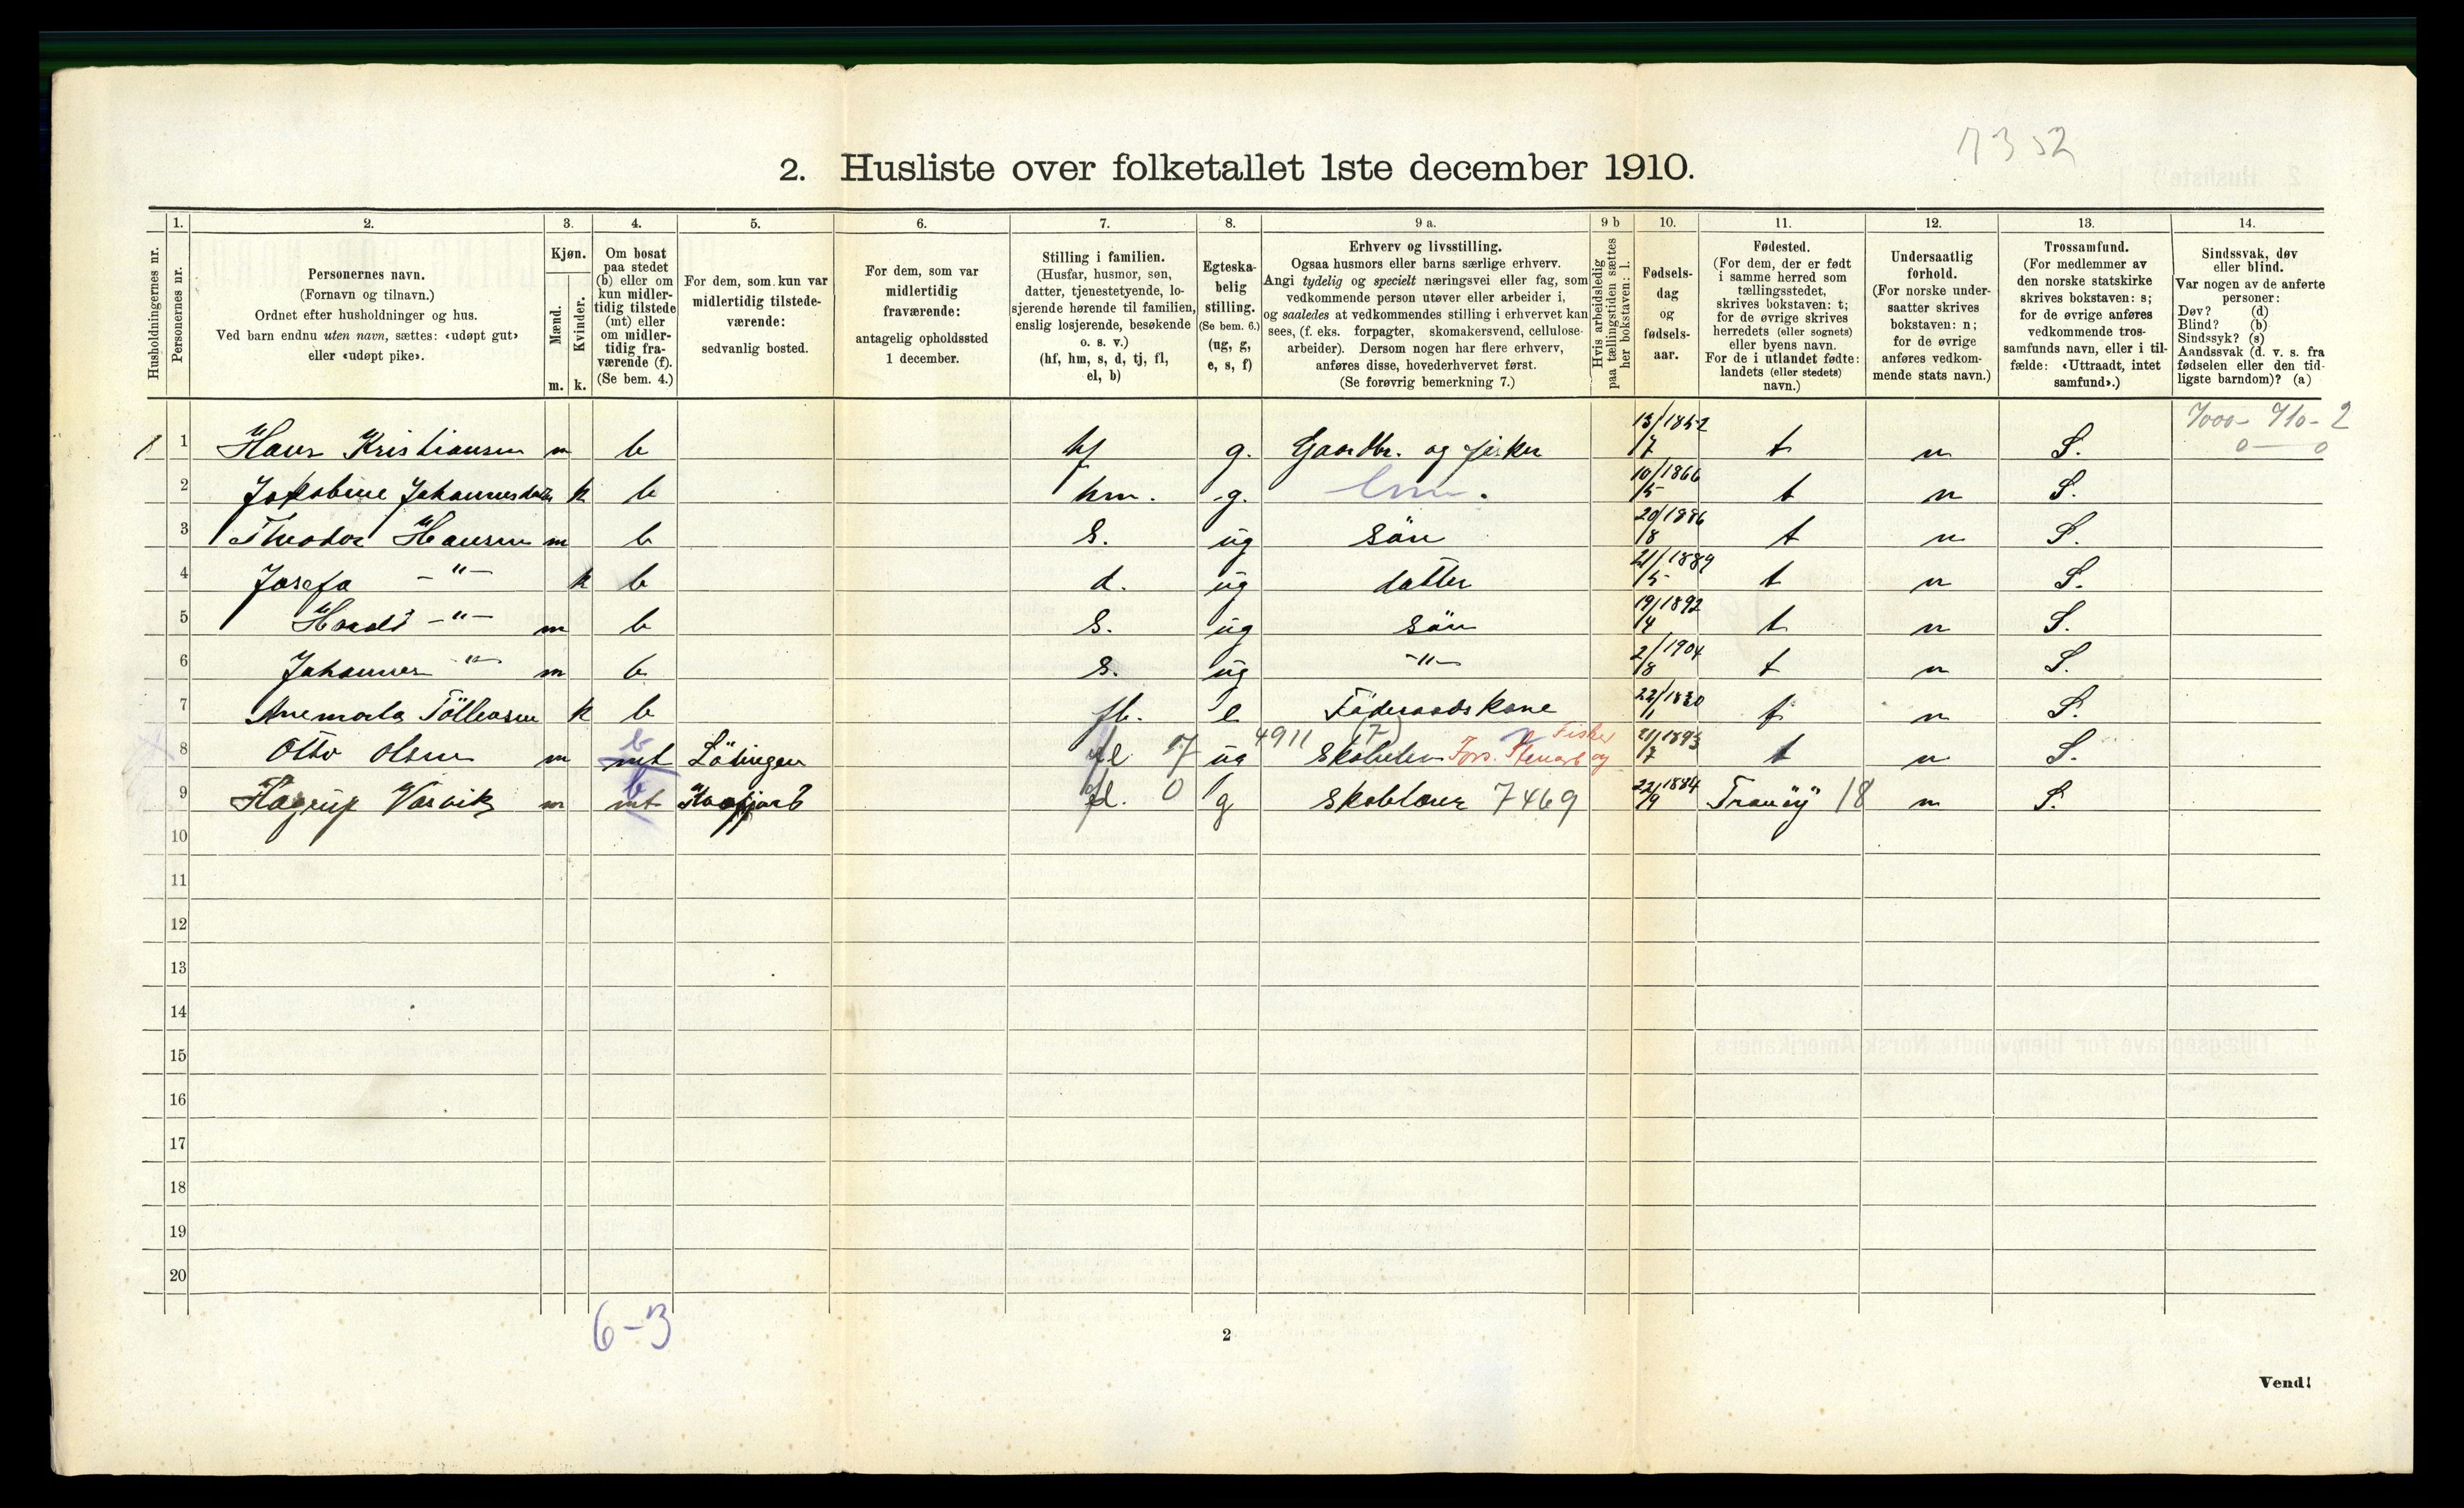 7352
2. Husliste over folketallet 1ste december 1910.
1. 2. 3. 4. 5. 6. 7. 8. 9 a. 9 b 10. 11. 12. 13. 14.
Husholdningernes nr.
Personernes nr.
Personernes navn.
(Fornavn og tilnavn.)
Ordnet efter husholdninger og hus.
Ved barn endnu uten navn, sættes: «udøpt gut»
eller «udøpt pike».
Kjøn.
Mænd.
Kvinder.
m. k.
Om bosat
paa stedet
(b) eller om
kun midler-
tidig tilstede
(mt) eller
om midler-
tidig fra-
værende (f).
(Se bem. 4.)
For dem, som kun var
midlertidig tilstede-
værende:
sedvanlig bosted.
For dem, som var
midlertidig
fraværende:
antagelig opholdssted
1 december.
Stilling i familien.
(Husfar, husmor, søn,
datter, tjenestetyende, lo-
sjerende hørende til familien,
enslig losjerende, besøkende
o. s. v.)
(hf, hm, s, d, tj, fl,
el, b)
Egteska-
belig
stilling.
(Se bem. 6.)
(ug, g,
e, s, f)
Erhverv og livsstilling.
Ogsaa husmors eller barns særlige erhverv.
Angi tydelig og specielt næringsvei eller fag, som
vedkommende person utøver eller arbeider i,
og saaledes at vedkommendes stilling i erhvervet kan
sees, (f. eks. forpagter, skomakersvend, cellulose-
arbeider). Dersom nogen har flere erhverv,
anføres disse, hovederhvervet først.
(Se forøvrig bemerkning 7.)
Hvis arbeidsledig
paa tællingstiden sættes
her bokstaven: l.
Fødsels-
dag
og
fødsels-
aar.
Fødested.
(For dem, der er født
i samme herred som
tællingsstedet,
skrives bokstaven: t;
for de øvrige skrives
herredets (eller sognets)
eller byens navn.
For de i utlandet fødte:
landets (eller stedets)
navn.)
Undersaatlig
førhold.
(For norske under-
saatter skrives
bokstaven: n;
for de øvrige
anføres vedkom-
mende stats navn.)
Trossamfund.
(For medlemmer av
den norske statskirke
skrives bokstaven: s;
for de øvrige anføres
vedkommende tros-
samfunds navn, eller i til-
fælde: «Uttraadt, intet
samfund».)
Sindssvak, døv
eller blind.
Var nogen av de anførte
personer:
Døv? (d)
Blind? (b)
Sindssyk? (s)
Aandssvak (d. v. s. fra
fødselen eller den tid-
ligste barndom)? (a)
7000- 710- 2
0 — 0
1 1 Hans Kristiansen m b hf g. Gaardbr. og fisker 13/7 1852 t n S.
2 Jakobine Johannesdatter k b hm. g. 10/5 1866 t n S.
3 Theodor Hansen m b S. ug sön 20/8 1886 t n S.
4 Josefa -"- k b d. ug datter 21/5 1889 t n S.
5 Harald -"- m b S. ug sön 19/4 1892 t n S.
6 Johannes -"- m b S. ug -"- 2/8 1904 t n S.
7 Anemarta Tölleasen k b fl. e Föderaadskone 22/11 1830 t n S.
8 Otto Olsen m mt b Lödingen fl 7 ug 4911 (7) Fisker og 21/7 1893 t n S.
9 Hagrup Vasvik m mt b Kvæfjord fl. 0 g Skolelærer 7469 22/9 1884 Tranöy 18 n S.
10
11
12
13
14
15
16
17
18
19
20
6-3
2
Vend!